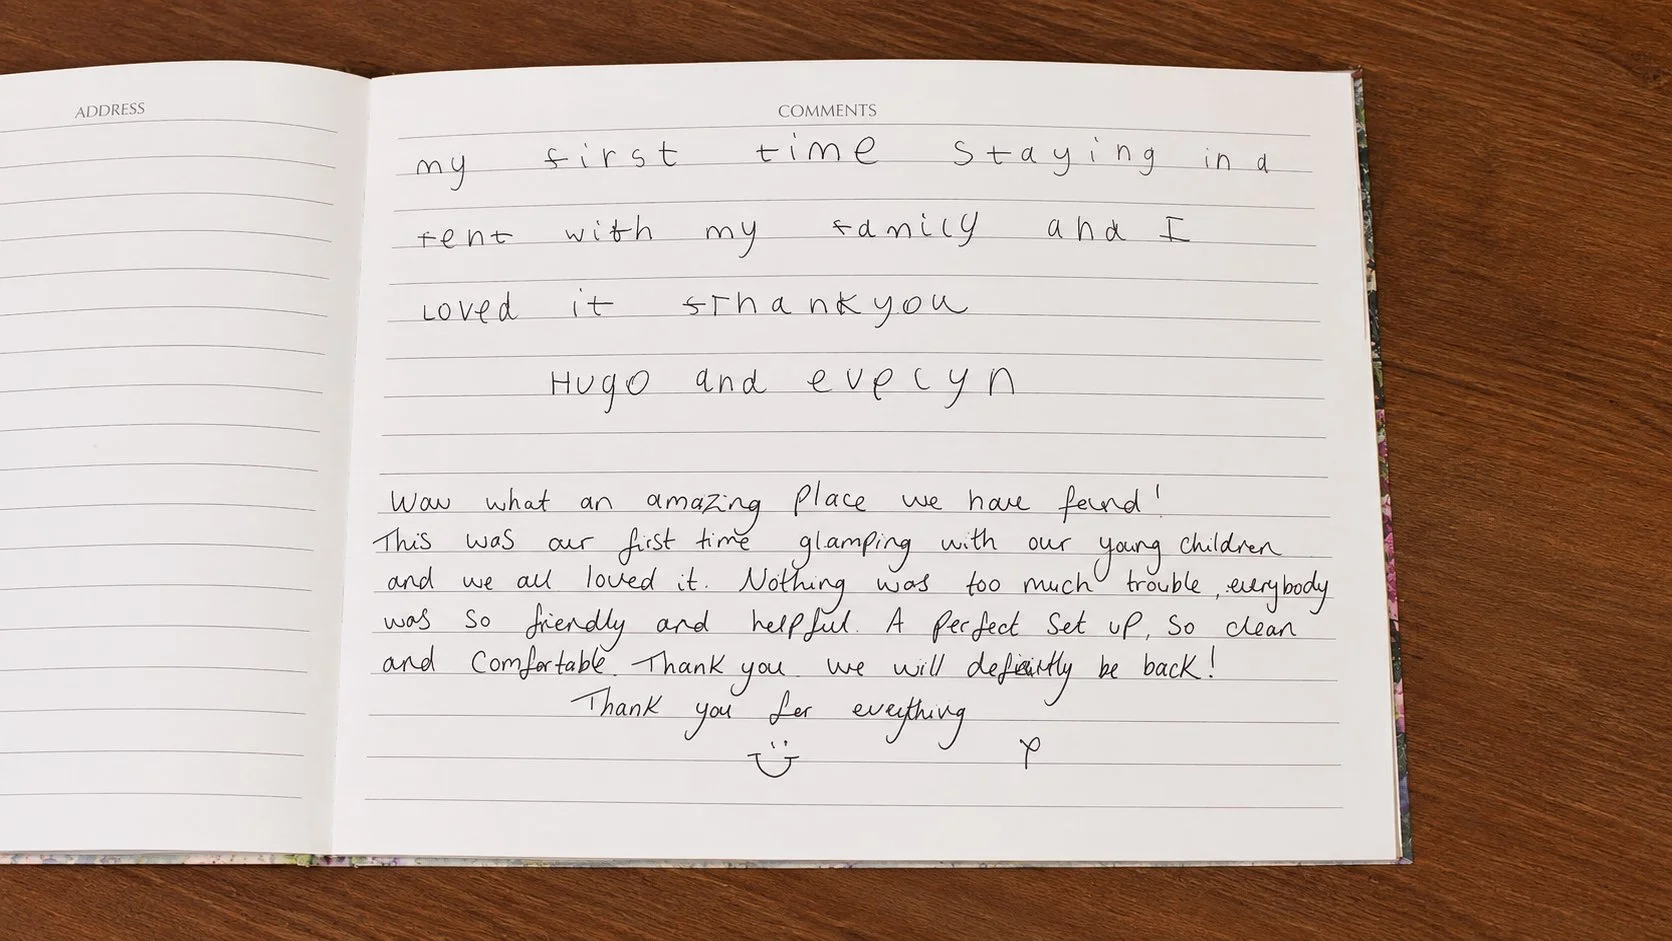 ADDRESS
COMMENTS
my first time staying in a
tent with my family and I
Loved it Thankyou
Hugo and evelyn
Wow what an amazing place we have found!
This was our first time glamping with our young children
and we all loved it. Nothing was too much trouble, everybody
was so friendly and helpful. A perfect set up, so clean
and comfortable. Thank you. we will definitly be back!
Thank you for everything